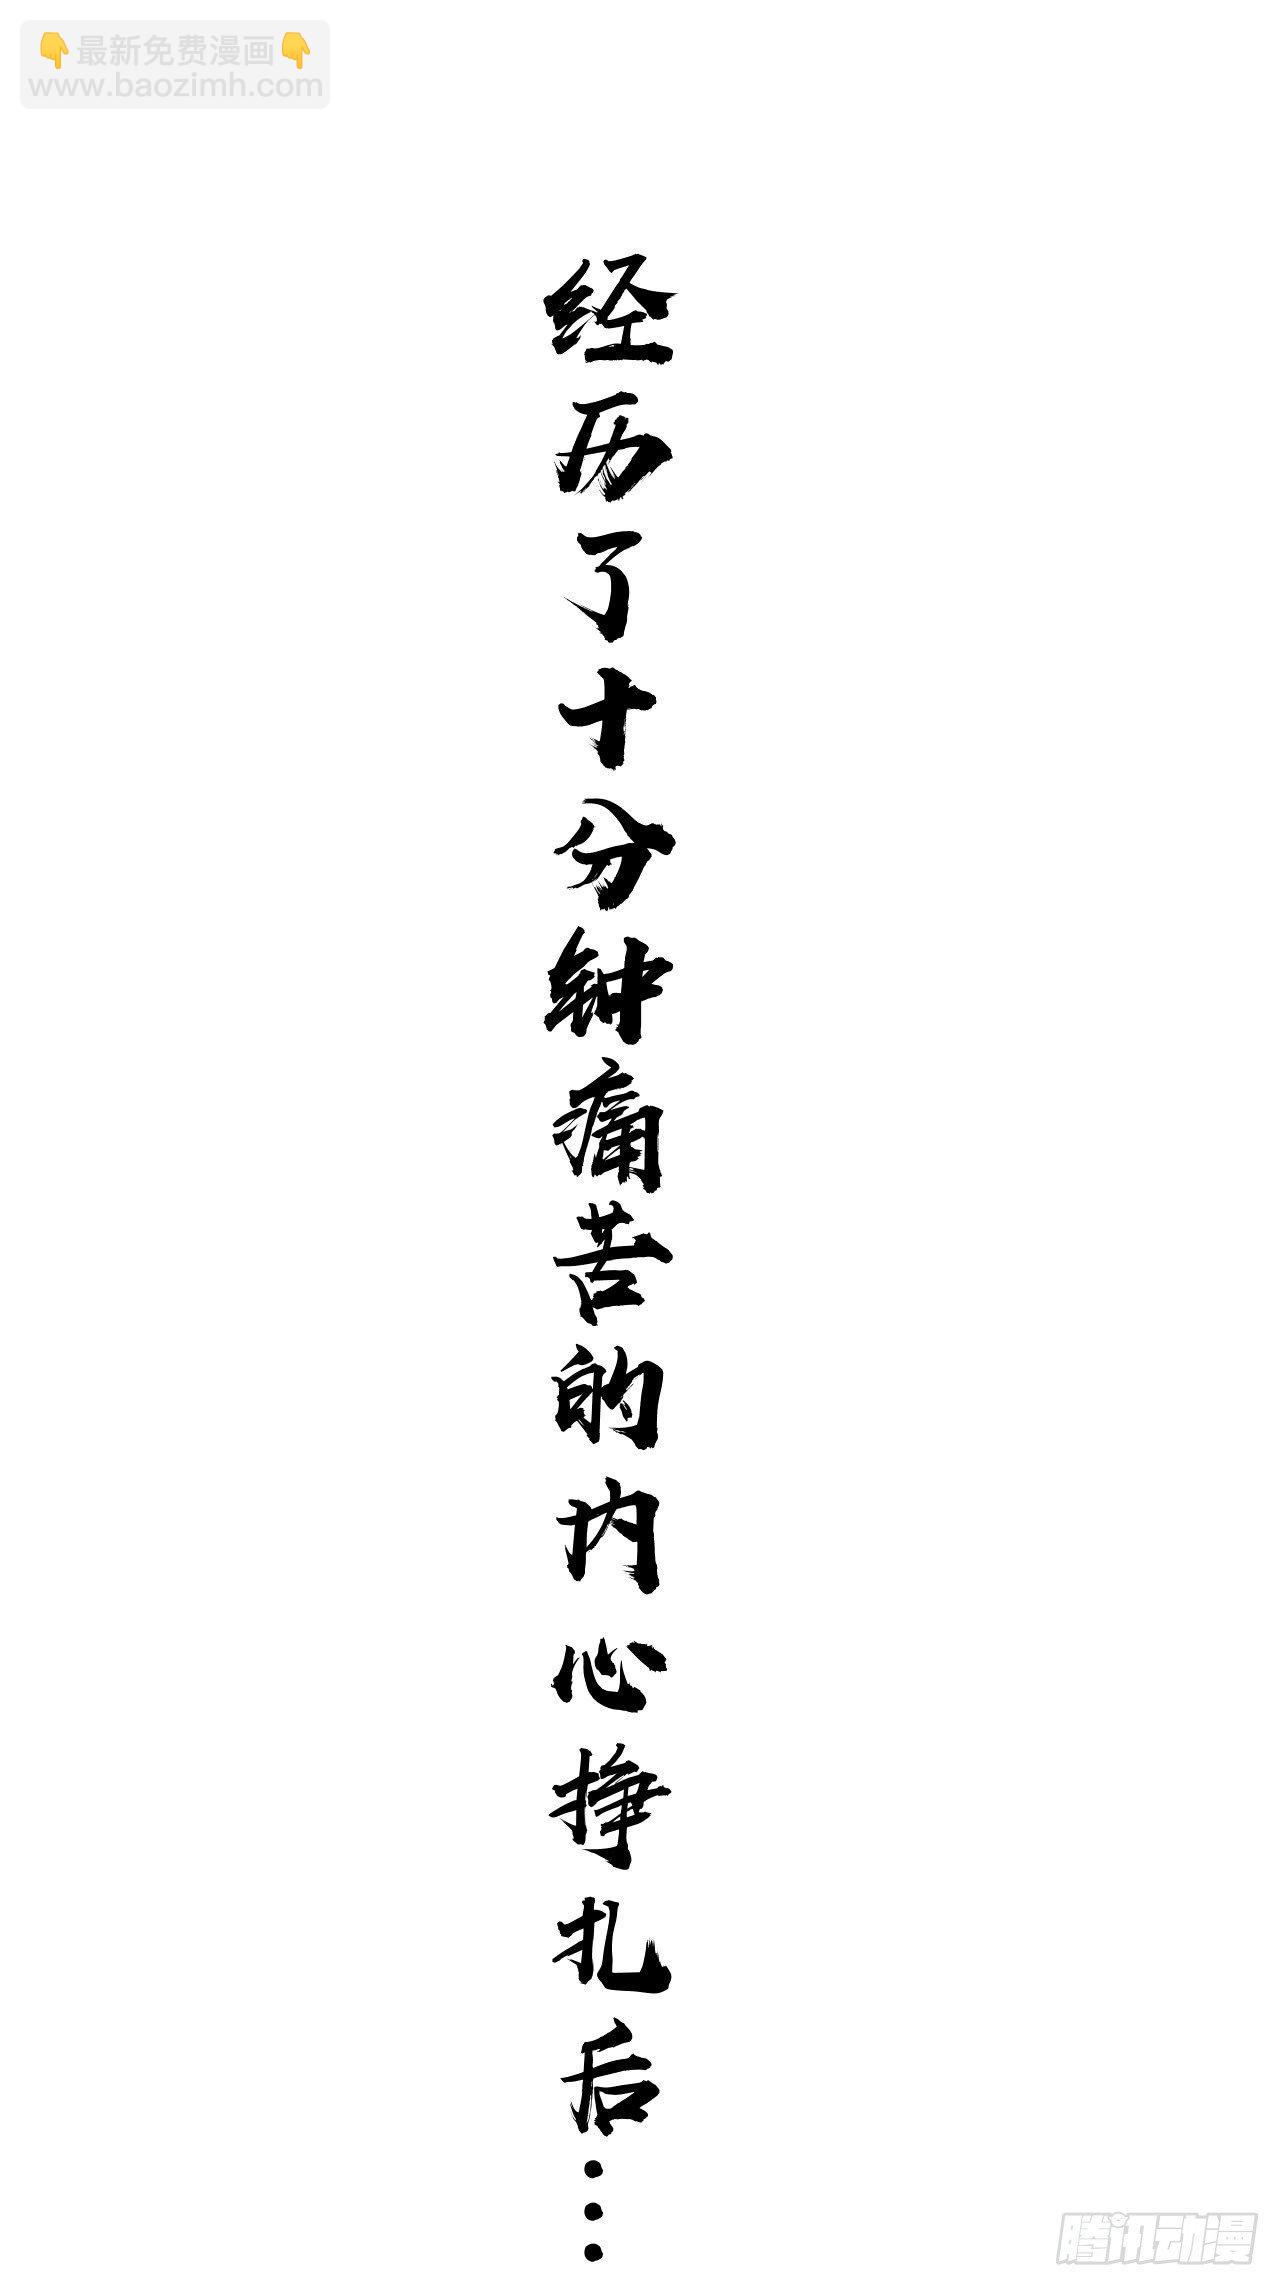 👇最新免费漫画👇
www.baozimh.com
经历了十分钟痛苦的内心挣扎后…
腾讯动漫